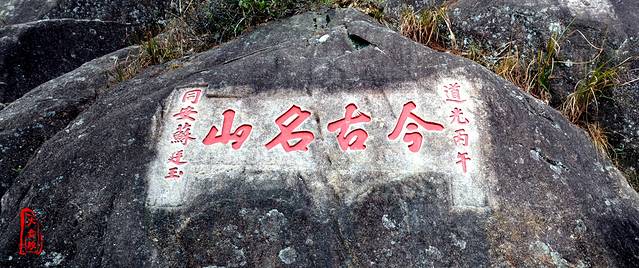 道光丙午
今古名山
同安蘇廷玉